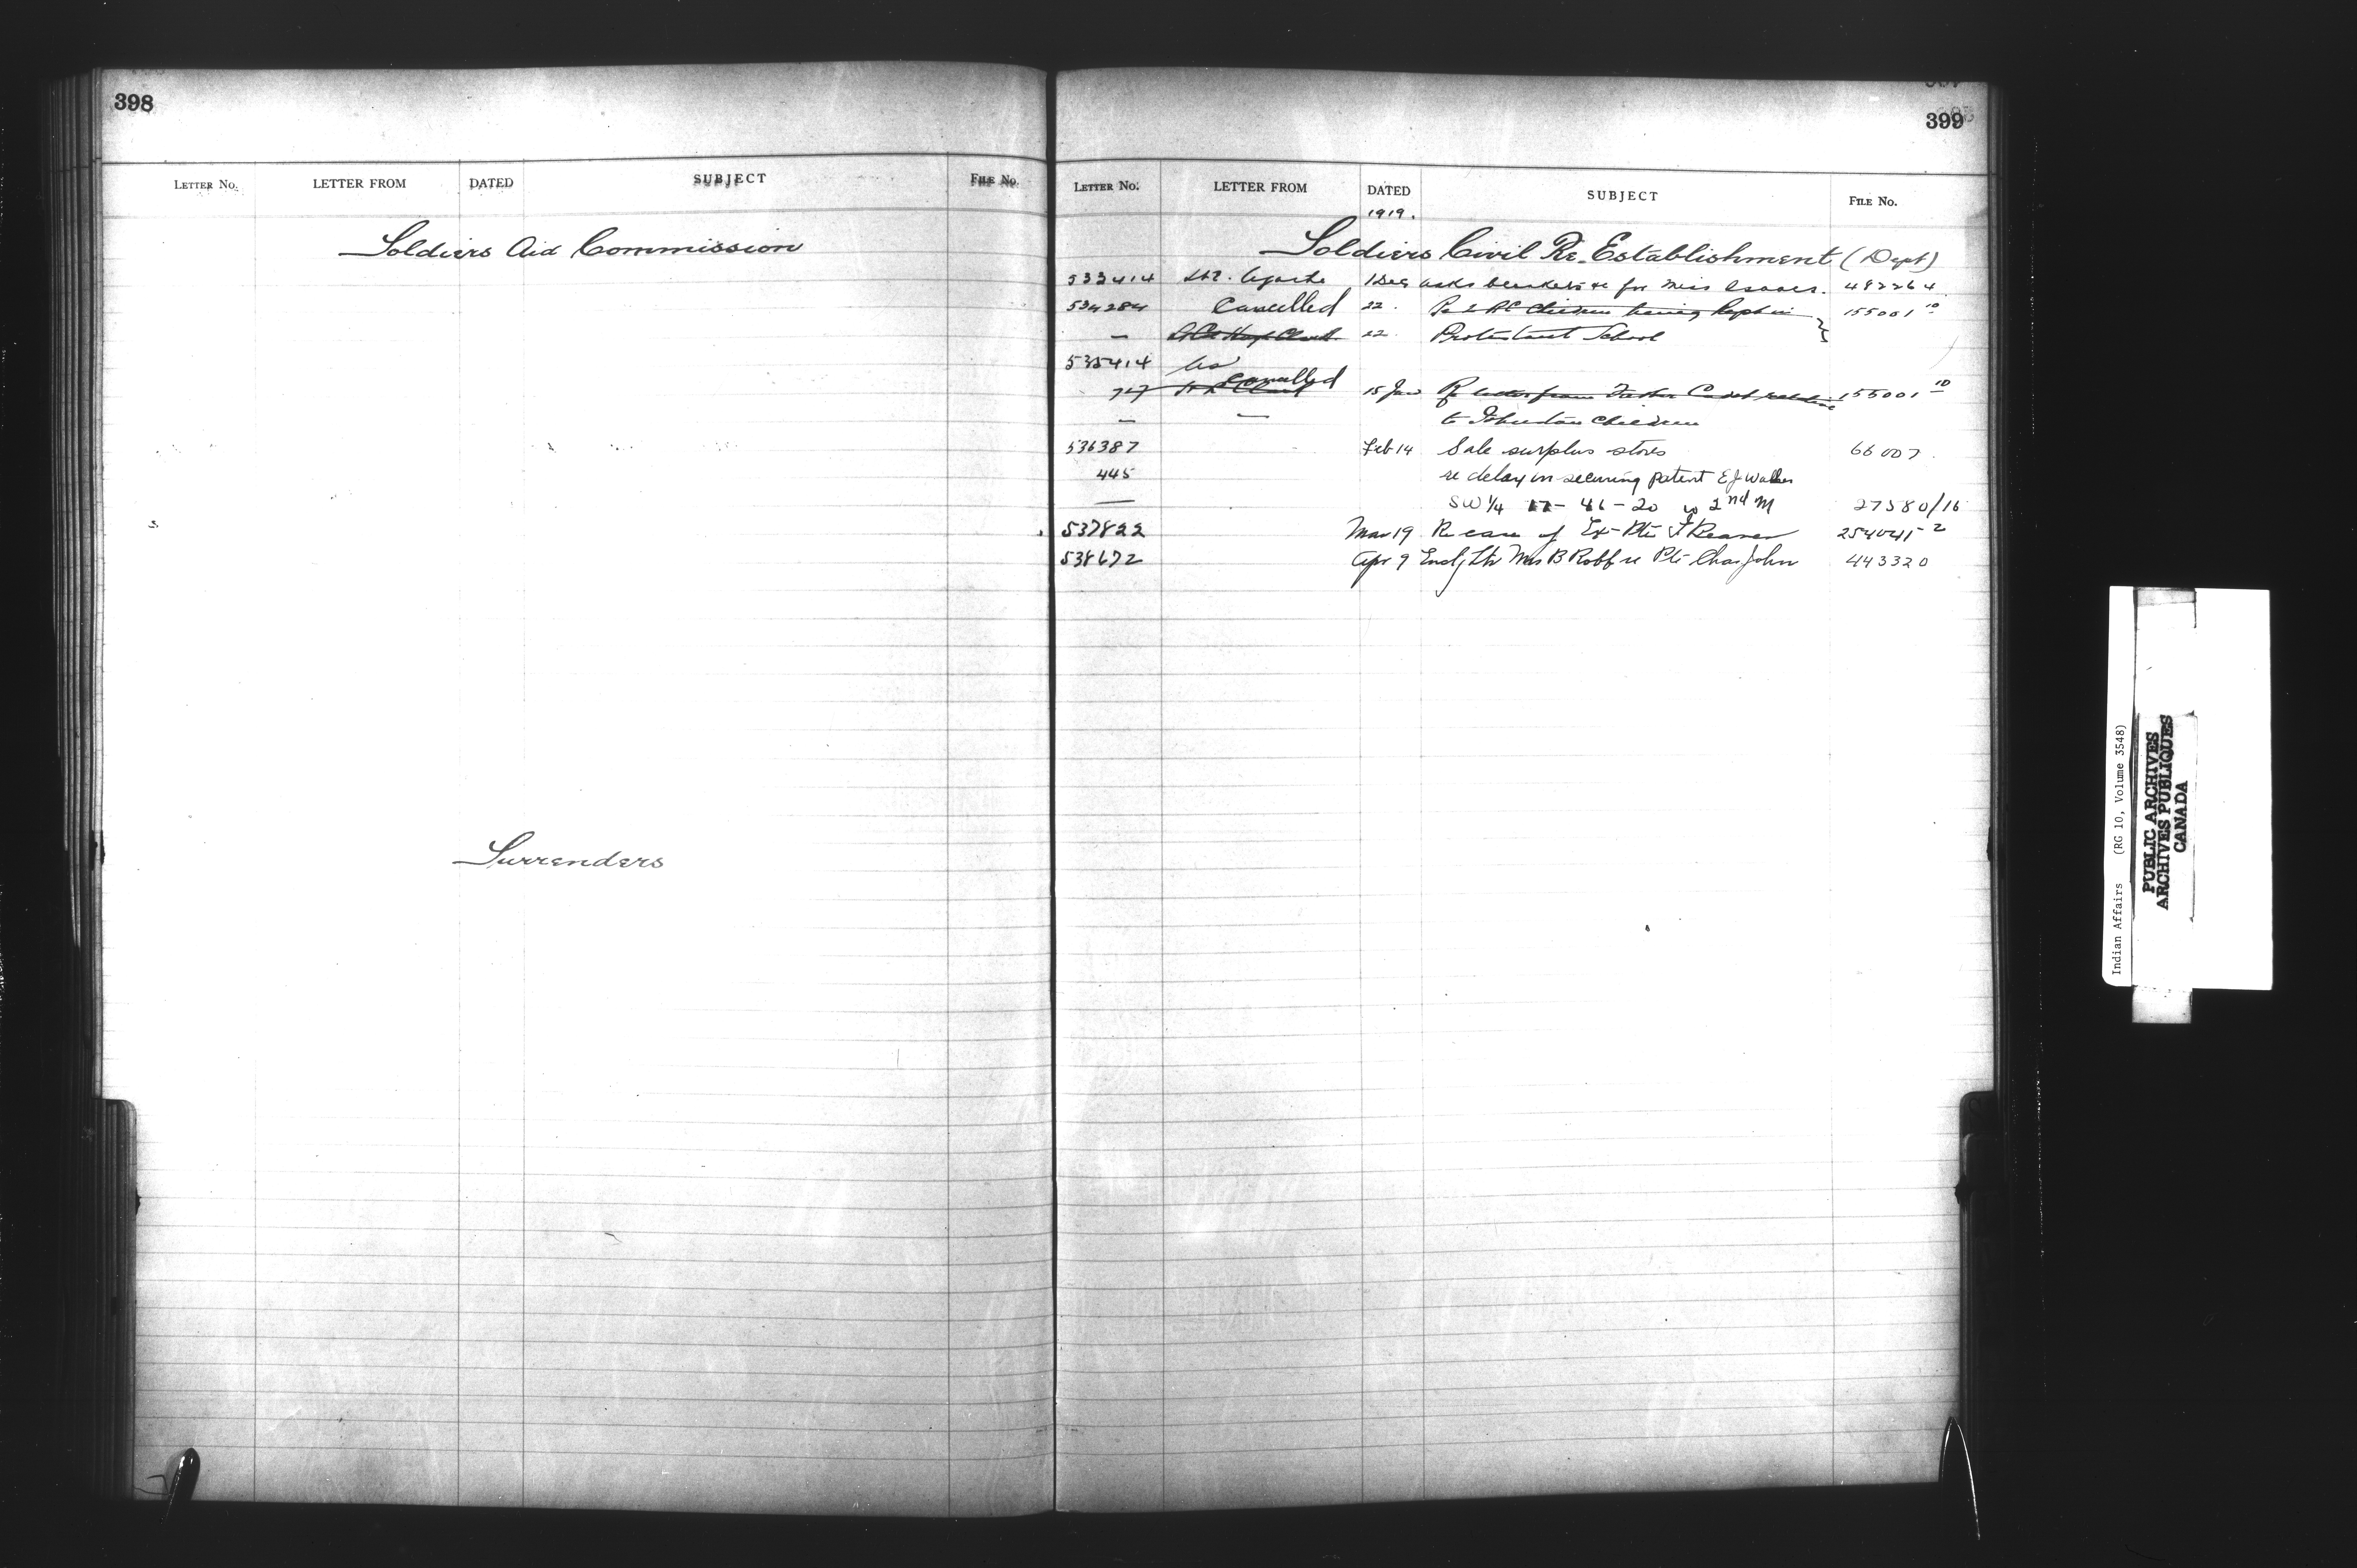 398
LETTER No. LETTER FROM DATED SUBJECT FILE No.
Soldiers Aid Commission
Surrenders
399
LETTER No. LETTER FROM DATED SUBJECT FILE No.
1919.
Soldiers Civil Re-Establishment (Dept)
533414 1 Dec asks for Miss 482264
534284 Cancelled 22. Re Children being Kept in 155001 10
— 22 Protestant School
535414
747 Cancelled 15 Jan Re letter from Father 155001 10
— — to Johnston Children
536387 Feb 14 Sale surplus stores 66007
445 re delay in securing patent E J Walker
— SW 1/4 17-46-20 w 2nd M 27580/16
537822 Mar 19 Re case of Ex-Pte 254041-2
538672 Apr 9 Encl Ltr Mrs B Robb re Pte Chas John 443320
Indian Affairs (RG 10, Volume 3548)
PUBLIC ARCHIVES
ARCHIVES PUBLIQUES
CANADA